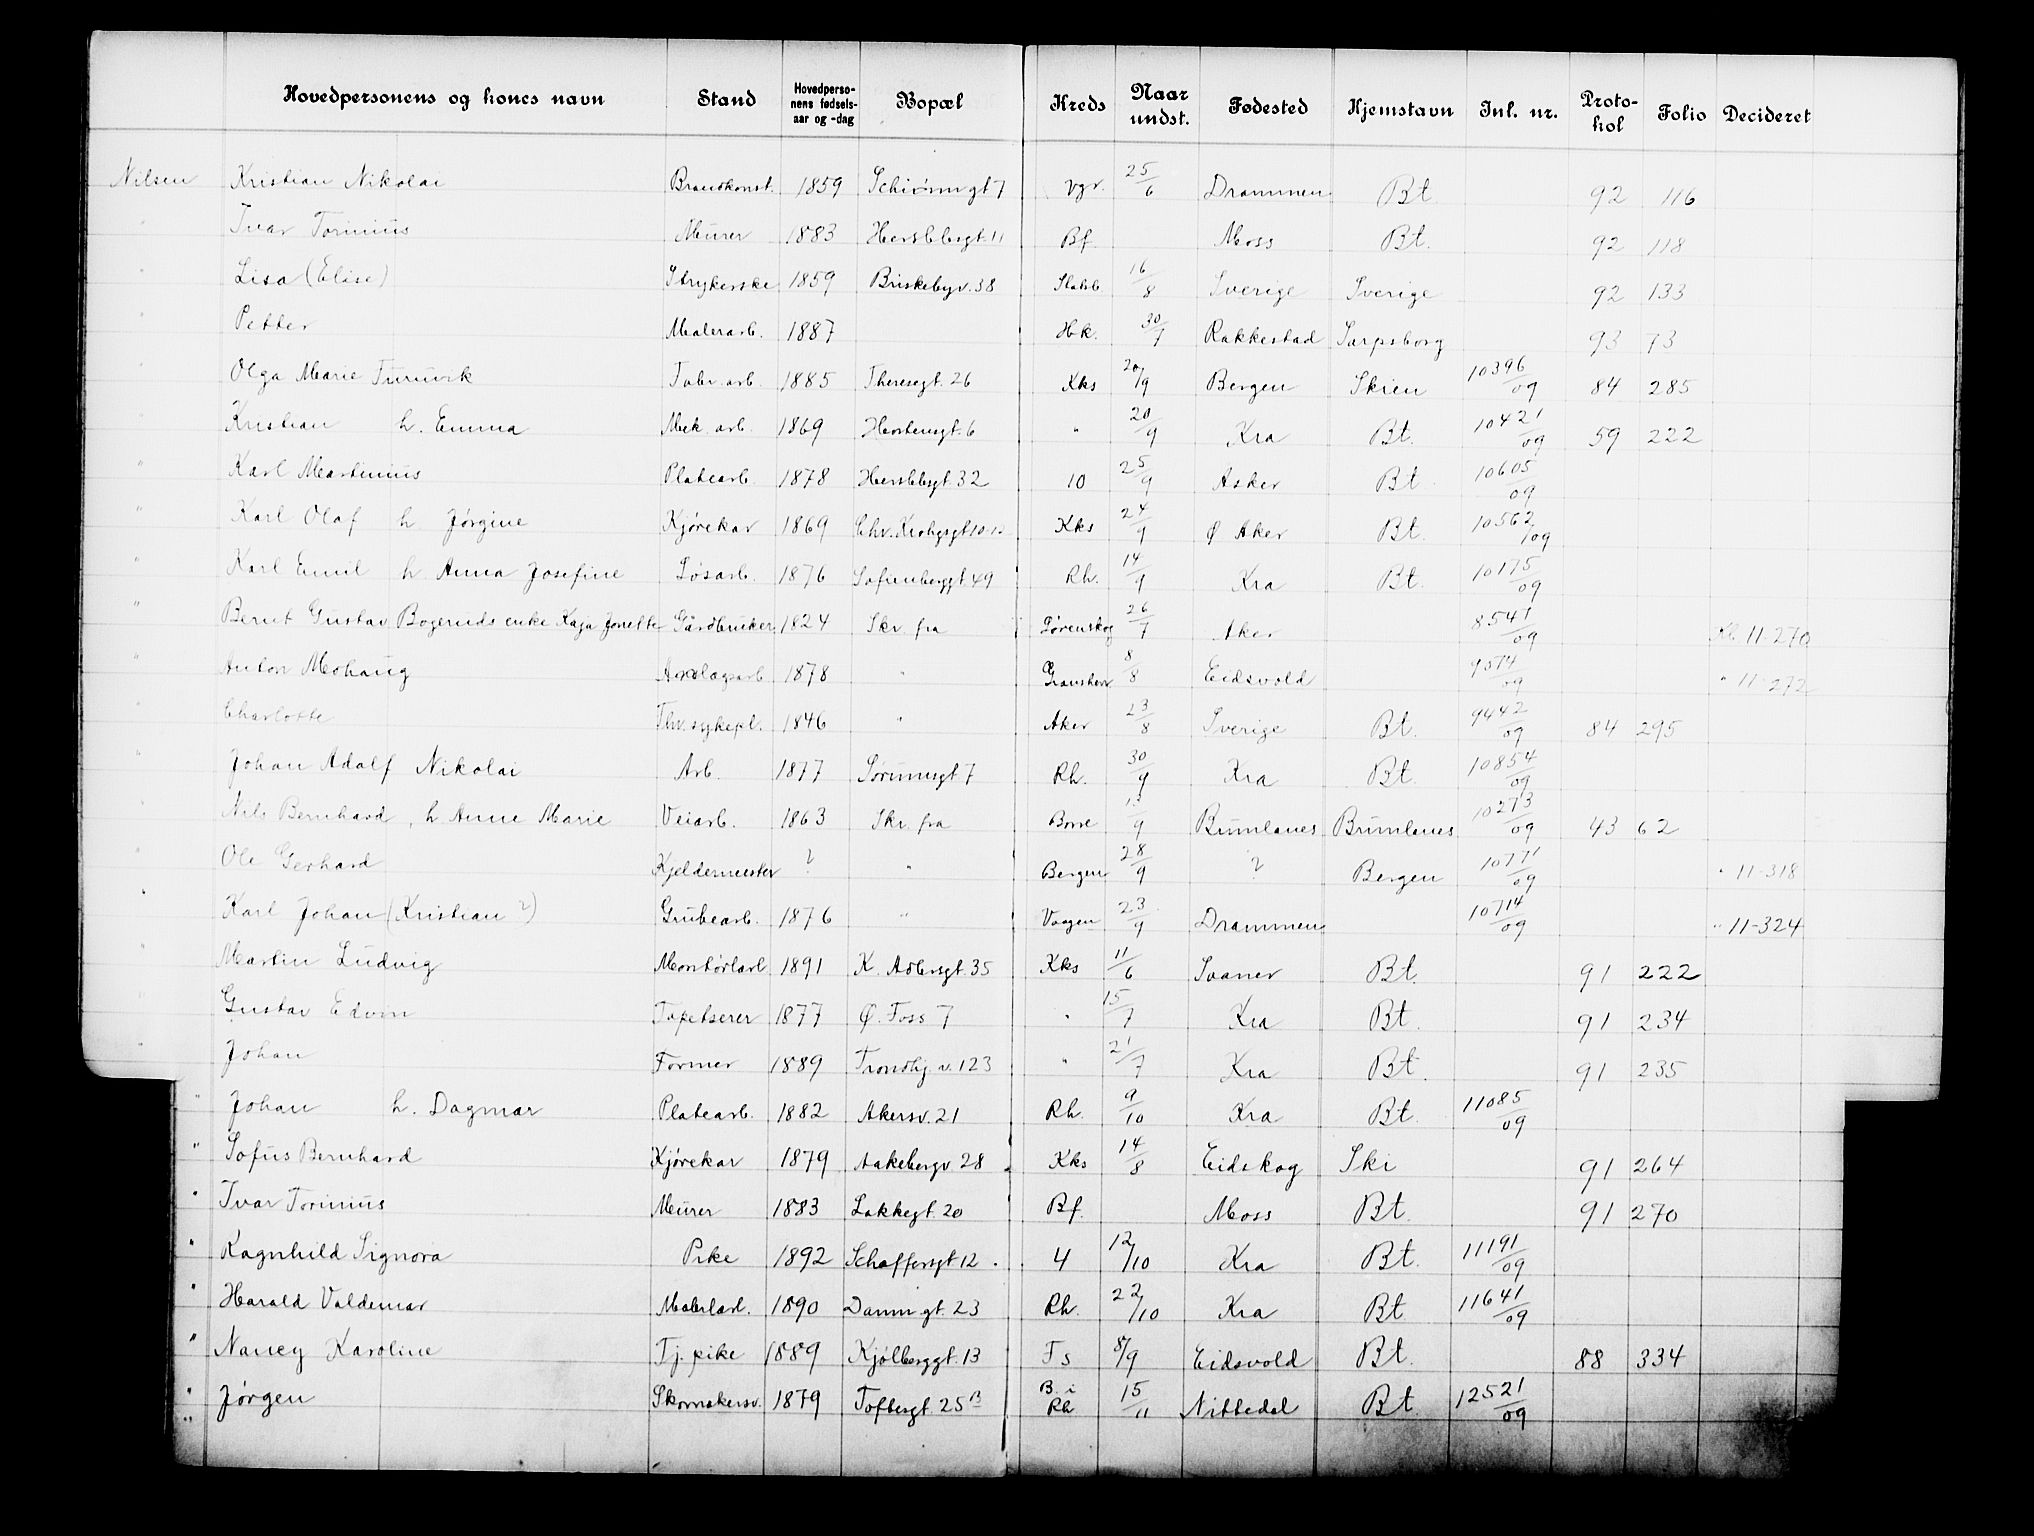 Hovedpersonens og kones navn Stand Hovedpersonens fødselsaar og -dag Bopæl Kreds Naar undst. Fødested Hjemstavn Inl. nr. Protokol Folio Decideret
Nilsen Kristian Nikolai Brandkonst. 1859 Schiørnngt 7 Vgr. 25/6 Drammen Bt 92 116
" Ivar Torinius Murer 1883 Herslebsgt. 11 Bf. Moss Bt. 92 118
" Lisa (Elise) Strykerske 1859 Briskebyv. 38 16/8 Sverige Sverige 92 133
" Petter Malerarb. 1887 Hk. 30/7 Rakkestad Sarpsborg 93 73
" Olga Marie Furuvik Fabr. arb. 1885 Theresegt. 26 Kks 20/9 Bergen Skien 10396/09 84 285
" Kristian h. Emma Mek. arb. 1869 Herslensgt. 6 " 20/9 Kra Bt. 10421/09 59 222
" Karl Martinius Platearb. 1878 Herslebsgt. 32 10 25/9 Asker Bt. 10605/09
" Karl Olaf h Jørgine Kjørekar 1869 Chr. Krohgsgt 10-12 Kks 24/9 Ø Aker Bt. 10562/09
" Karl Emil h Anna Josefine Løsarb. 1876 Sofienberggt 49 Rh. 14/9 Kra Bt. 10175/09
" Bernt Gustav Bogeruds enke Kaja Jonette Gårdbruker 1824 Skr. fra Lørenskog 26/7 Aker 8541/09 11-270
" Anton Mohaug Anlægsarb. 1878 " Gransherr 8/8 Eidsvold 9574/09 " 11-272
" Charlotte Fhv. sykepl. 1846 " Aker 23/8 Sverige Bt. 9442/09 84 295
" Johan Adolf Nikolai Arb. 1877 Sørumsgt 7 Rh. 30/9 Kra Bt. 10854/09
" Nils Bernhard, h Anne Marie Veiarb. 1863 Skr. fra Borre /9 Brunlanes Brunlanes 10273/09 43 62
" Ole Gerhard Kjeldermester ? " Bergen 28/9 ? Bergen 10771/09 " 11-318
" Karl Johan (Kristian ?) Grubearb. 1876 " Vaagen 23/9 Drammen 10714/09 " 11-324
" Martin Ludvig Montørlærl. 1891 K. Aslersgt. 35 Kks 11/6 Svaner Bt. 91 222
" Gustav Edvin Tapetserer 1877 Ø. Foss 7 " 15/7 Kra Bt. 91 234
Johan Former 1889 Trondhj. v. 123 " 21/7 Kra Bt. 91 235
" Johan h. Dagmar Platearb. 1882 Akersv. 21 Rh. 9/10 Kra Bt. 11085/09
" Sofus Bernhard Kjørekar 1879 Aakebergv. 28 Kks 14/8 Eidskog Ski 91 264
" Ivar Torinius Murer 1883 Lakkegt. 20 Bf. Moss Bt. 91 270
" Ragnhild Signora Pike 1892 Schaffersgt 12. 4 12/10 Kra Bt. 11191/09
" Harald Valdemar Malerlærl. 1890 Dannigt. 23 Rh. 22/10 Kra Bt 11641/09
" Nancy Karoline Tj. pike 1889 Kjølberggt. 13 Fs 8/9 Eidsvold Bt. 88 334
" Jørgen Skomakersv. 1879 Toftesgt. 25 B B. i Rh 15/11 Nittedal Bt. 12521/09
"